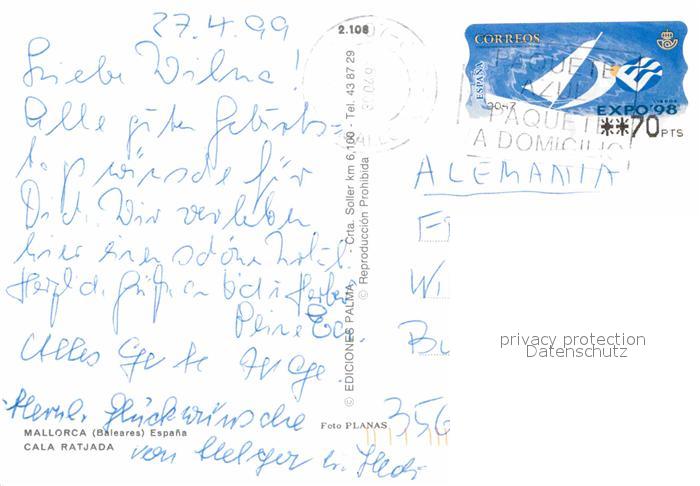 27.4.99
Liebe Wilma!
Alle guten Geburts=
tagswünsche für
Dich. Wir verleben
hier einen schönen
Herzl.
Alles Gute
Herzl. Glückwünsche
von Helga u. Hedi
MALLORCA (Baleares) España
CALA RATJADA
2.108
© EDICIONES PALMA - Crta. Soller km 6,100 - Tel. 43 87 29
© Reproducción Prohibida
Foto PLANAS
CORREOS
ESPAÑA
EXPO'98
**70 PTS
PAQUETE
AZUL
PAQUETE
A DOMICILIO
ALEMANIA
Wi
356
privacy protection
Datenschutz